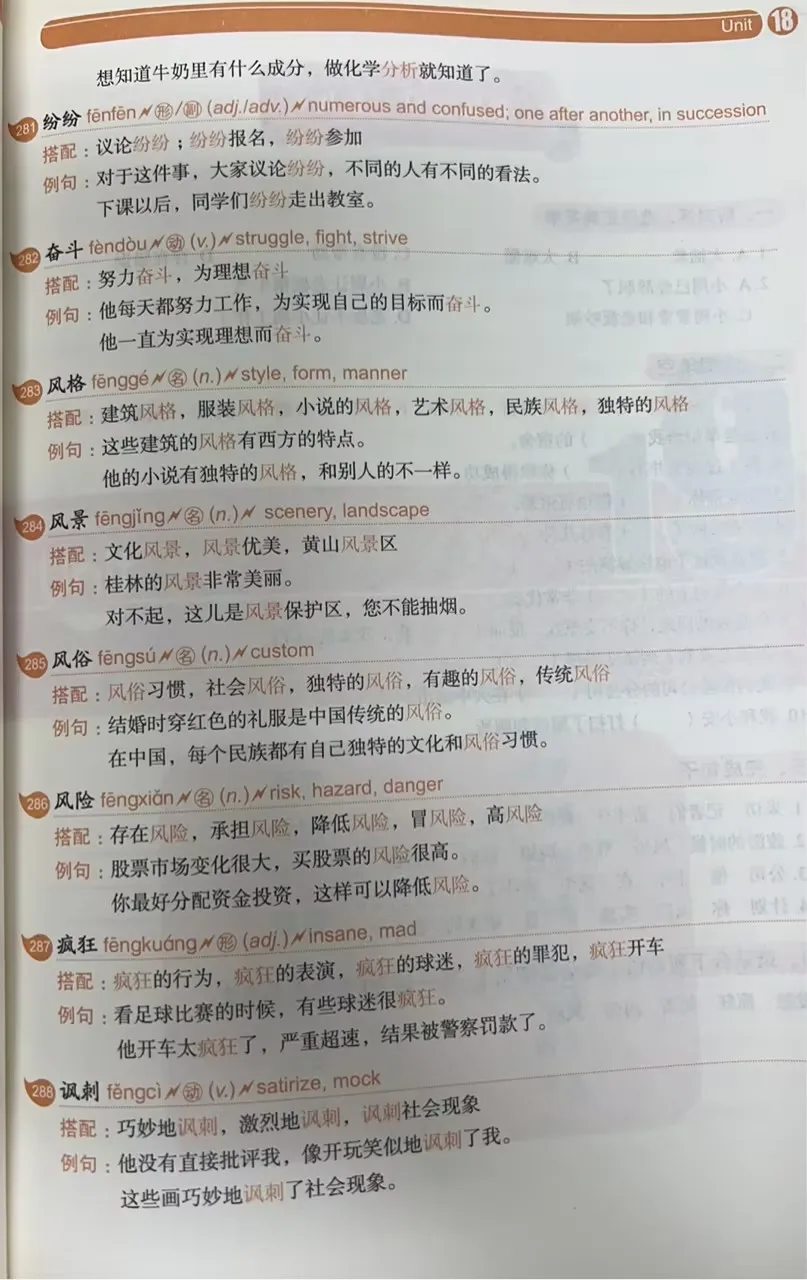 Unit 18
想知道牛奶里有什么成分，做化学分析就知道了。
281 纷纷 fēnfēn 形/副 (adj./adv.) numerous and confused; one after another, in succession
搭配：议论纷纷；纷纷报名，纷纷参加
例句：对于这件事，大家议论纷纷，不同的人有不同的看法。
下课以后，同学们纷纷走出教室。
282 奋斗 fèndòu 动 (v.) struggle, fight, strive
搭配：努力奋斗，为理想奋斗
例句：他每天都努力工作，为实现自己的目标而奋斗。
他一直为实现理想而奋斗。
283 风格 fēnggé 名 (n.) style, form, manner
搭配：建筑风格，服装风格，小说的风格，艺术风格，民族风格，独特的风格
例句：这些建筑的风格有西方的特点。
他的小说有独特的风格，和别人的不一样。
284 风景 fēngjǐng 名 (n.) scenery, landscape
搭配：文化风景，风景优美，黄山风景区
例句：桂林的风景非常美丽。
对不起，这儿是风景保护区，您不能抽烟。
285 风俗 fēngsú 名 (n.) custom
搭配：风俗习惯，社会风俗，独特的风俗，有趣的风俗，传统风俗
例句：结婚时穿红色的礼服是中国传统的风俗。
在中国，每个民族都有自己独特的文化和风俗习惯。
286 风险 fēngxiǎn 名 (n.) risk, hazard, danger
搭配：存在风险，承担风险，降低风险，冒风险，高风险
例句：股票市场变化很大，买股票的风险很高。
你最好分配资金投资，这样可以降低风险。
287 疯狂 fēngkuáng 形 (adj.) insane, mad
搭配：疯狂的行为，疯狂的表演，疯狂的球迷，疯狂的罪犯，疯狂开车
例句：看足球比赛的时候，有些球迷很疯狂。
他开车太疯狂了，严重超速，结果被警察罚款了。
288 讽刺 fěngcì 动 (v.) satirize, mock
搭配：巧妙地讽刺，激烈地讽刺，讽刺社会现象
例句：他没有直接批评我，像开玩笑似地讽刺了我。
这些画巧妙地讽刺了社会现象。